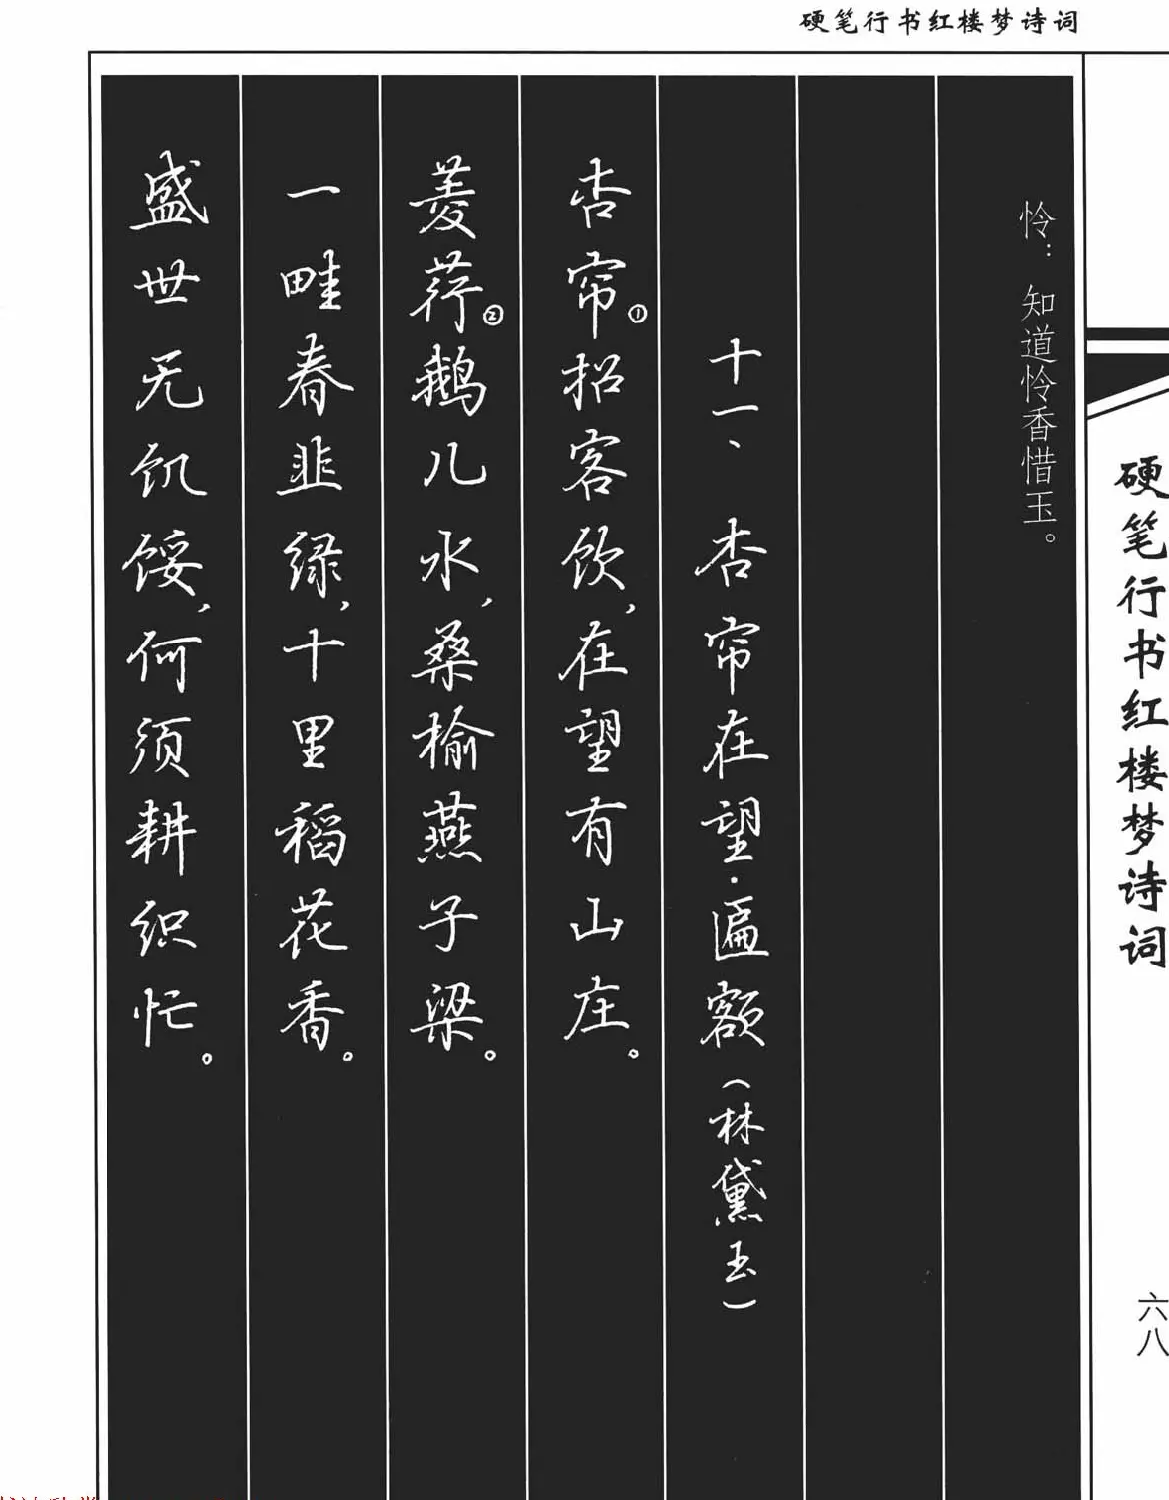 硬笔行书红楼梦诗词
硬笔行书红楼梦诗词
六八
怜：知道怜香惜玉。
十一、杏帘在望·匾额（林黛玉）
杏帘①招客饮，在望有山庄。
菱荇②鹅儿水，桑榆燕子梁。
一畦春韭绿，十里稻花香。
盛世无饥馁，何须耕织忙。